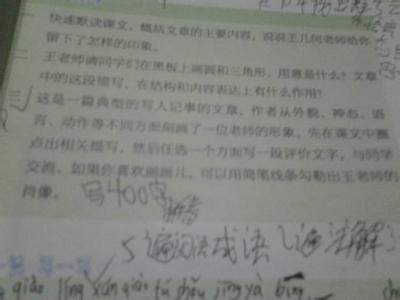 快速默读课文，概括文章的主要内容，说说王几何老师给你
留下了怎样的印象。
王老师请同学们在黑板上画圆和三角形，用意是什么？文章
中的这段描写，在结构和内容表达上有什么作用？
这是一篇典型的写人记事的文章，作者从外貌、神态、语
言、动作等不同方面刻画了一位老师的形象。先在课文中圈
点出相关描写，然后任选一个方面写一段评价文字，与同学
交流。如果你喜欢画画儿，可以用简笔线条勾勒出王老师的
肖像。
写400字
5遍词语成语1遍注解
写一写
qiáo jīng xún qiào tú shǒu jīng yà bīng